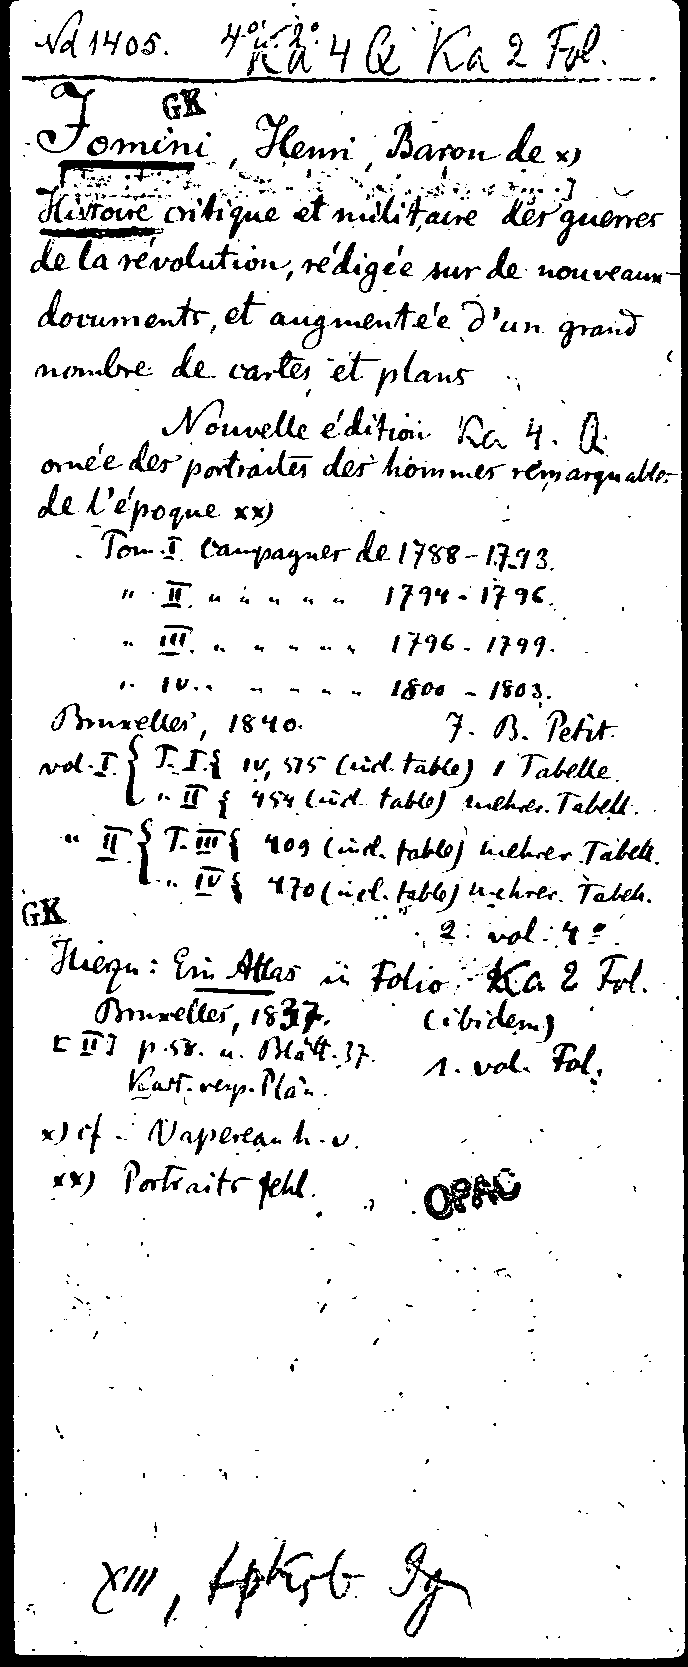 Nd 1405. 4° u. 2° Ka 4 Q Ka 2 Fol.
GK
Jomini, Henri, Baron de x)
Histoire critique et militaire des guerres
de la révolution, rédigée sur de nouveaux
documents, et augmentée d'un grand
nombre de cartes et plans
Nouvelle édition Ka 4. Q.
ornée des portraites des hommes remarquables
de l'époque xx)
Tom. I Campagnes de 1788-1793.
" II. " " " " " 1794-1796.
" III. " " " " " 1796-1799.
" IV. " " " " " 1800-1803.
Bruxelles, 1840. J. B. Petit.
vol. I { T. I. { IV, 515 (incl. table) 1 Tabelle.
" II { 454 (incl. table) mehrer. Tabell.
" II { T. III { 409 (incl. table) mehrer Tabell.
" IV { 470 (incl. table) mehrer. Tabell.
GK
2. vol. 4°.
Hiezu: Ein Atlas in Folio Ka 2 Fol.
Bruxelles, 1837. (ibidem)
[II] p. 58. u. Blätt. 37. 1. vol. Fol.
Kart. resp. Plän.
x) cf. Vapereau h. v.
xx) Portraits fehl.
OPAC
XIII,